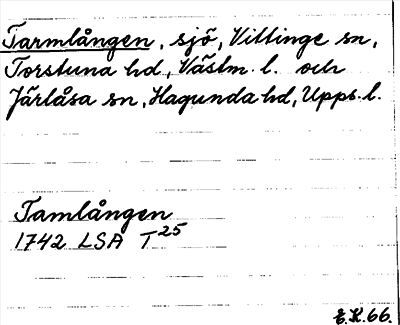 Tarmlången, sjö, Vittinge sn,
Torstuna hd, Västm. l. och
Järlåsa sn, Hagunda hd, Upps. l.
Tamlången
1742 LSA T25
E.K. 66.